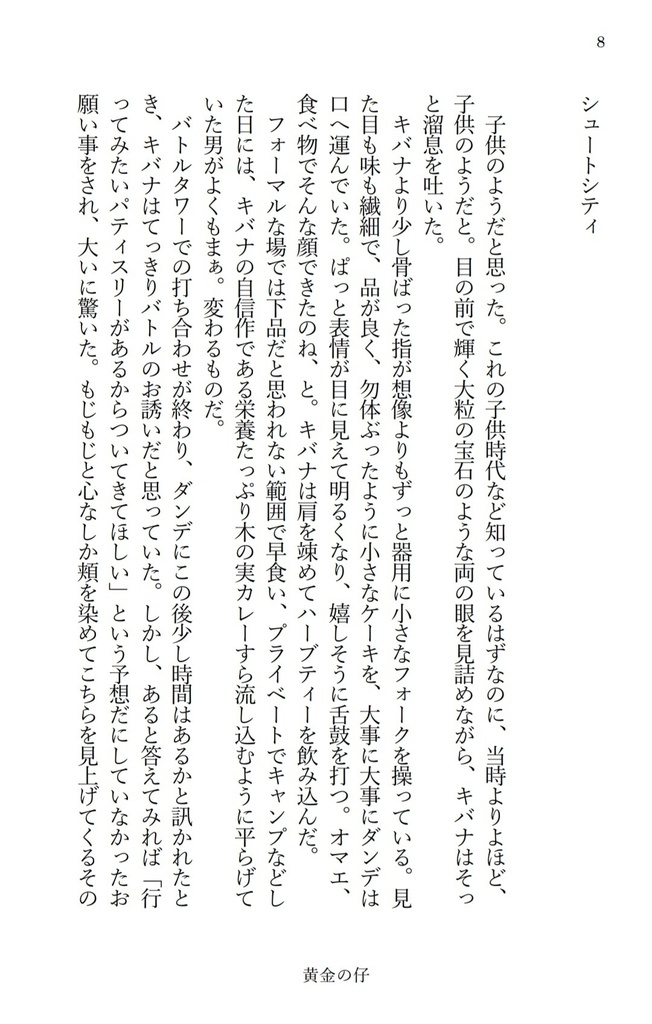 8
シュートシティ
子供のようだと思った。これの子供時代など知っているはずなのに、当時よりよほど、
子供のようだと。目の前で輝く大粒の宝石のような両の眼を見詰めながら、キバナはそっ
と溜息を吐いた。
キバナより少し骨ばった指が想像よりもずっと器用に小さなフォークを操っている。見
た目も味も繊細で、品が良く、勿体ぶったように小さなケーキを、大事に大事にダンデは
口へ運んでいた。ぱっと表情が目に見えて明るくなり、嬉しそうに舌鼓を打つ。オマエ、
食べ物でそんな顔できたのね、と。キバナは肩を竦めてハーブティーを飲み込んだ。
フォーマルな場では下品だと思われない範囲で早食い、プライベートでキャンプなどし
た日には、キバナの自信作である栄養たっぷり木の実カレーすら流し込むように平らげて
いた男がよくもまぁ。変わるものだ。
バトルタワーでの打ち合わせが終わり、ダンデにこの後少し時間はあるかと訊かれたと
き、キバナはてっきりバトルのお誘いだと思っていた。しかし、あると答えてみれば「行
ってみたいパティスリーがあるからついてきてほしい」という予想だにしていなかったお
願い事をされ、大いに驚いた。もじもじと心なしか頬を染めてこちらを見上げてくるその
黄金の仔